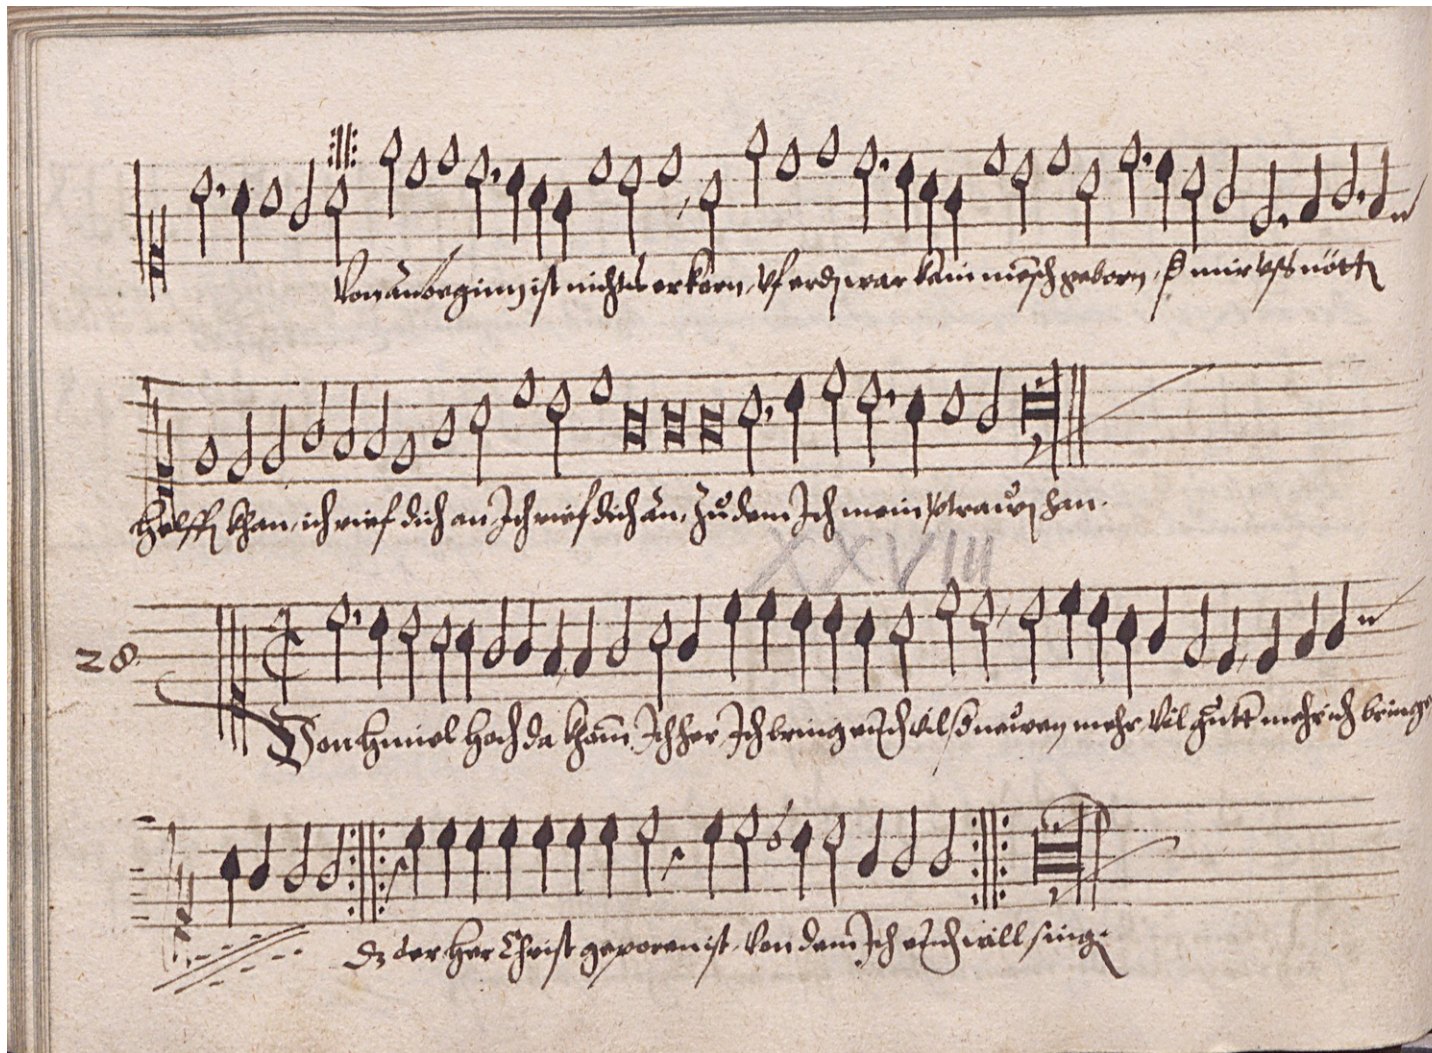 Von anbeginn ist nichts erkorn, Uf erdn war kain mēsch geborn, d mir uss nöttn
Helffn khan, ich rief dich an Ich rief dich an, Zů dem Ich mein vtrawn han.
XXVIII
28. Von himel hoch da kham Ich her Ich bring euch vil newen mehr, Vil gůtt mehr ich bring
Dz der her Christ geporen ist, Von dem Ich euch will sing